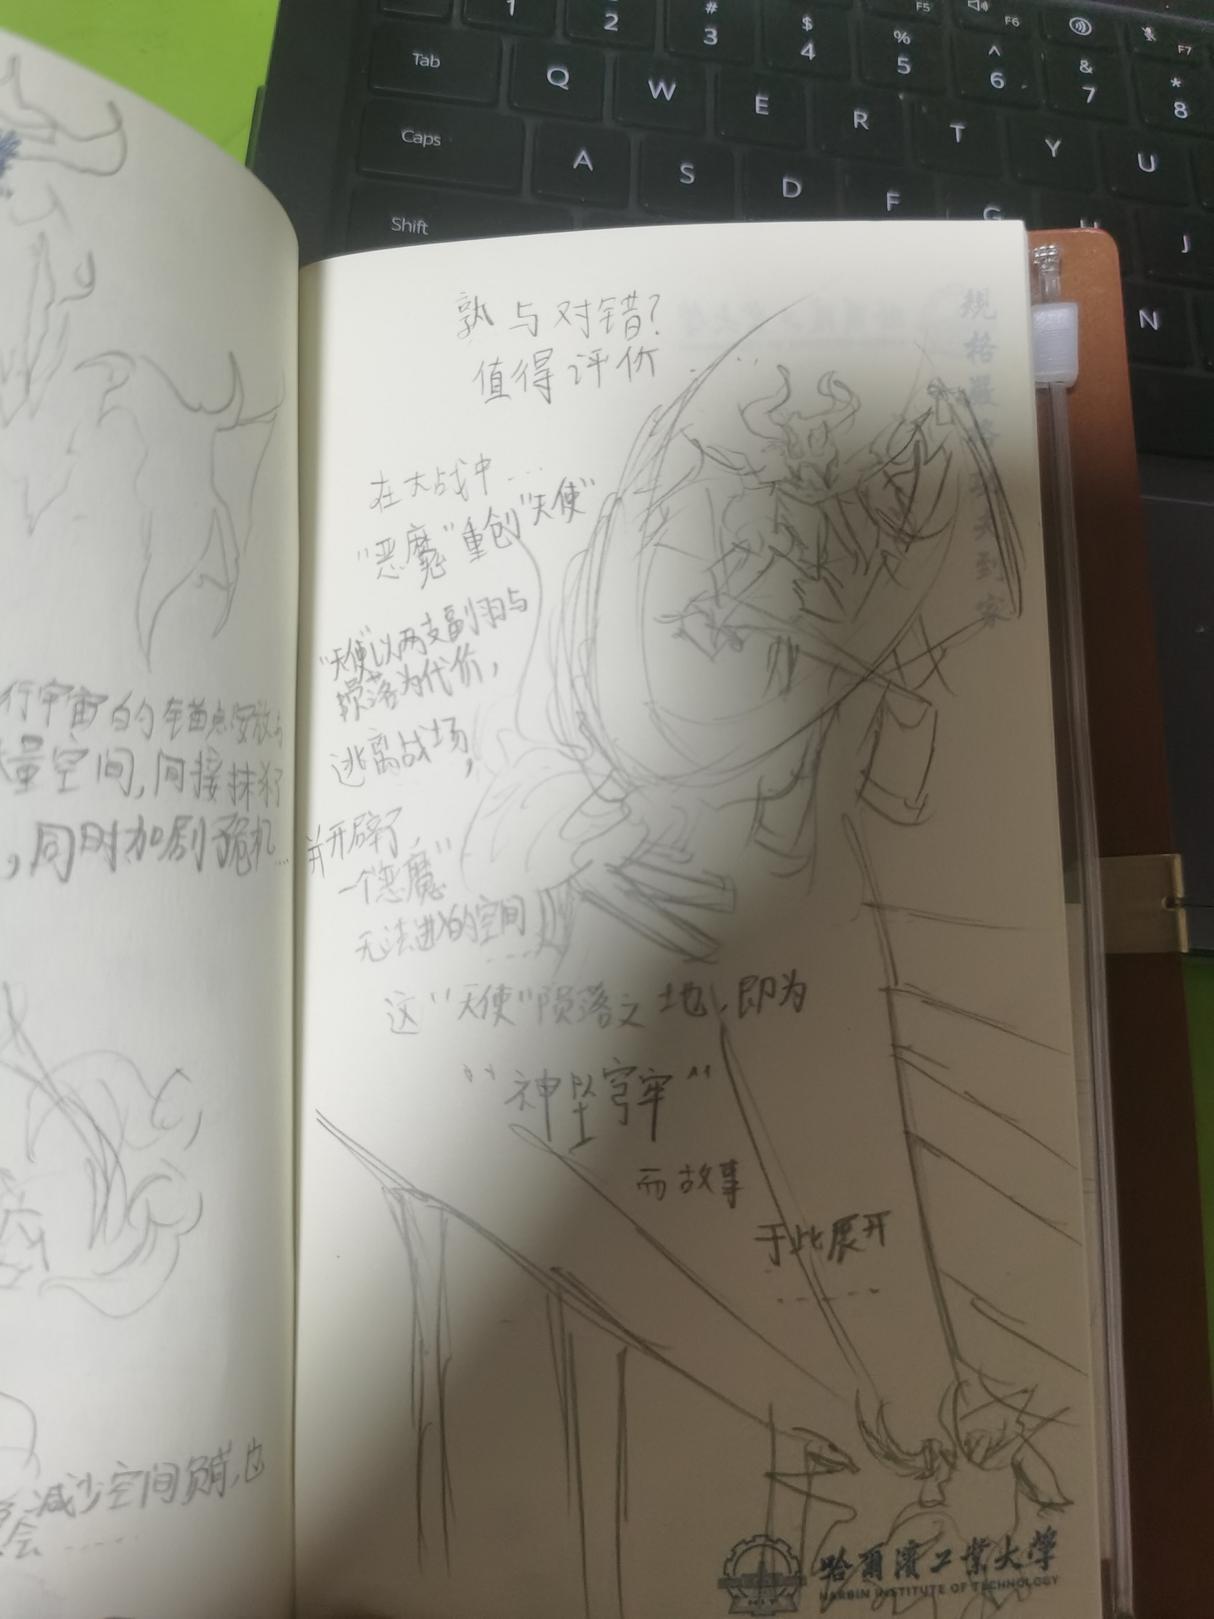 1
2
#
3
$
4
%
5
^
6
&
7
*
8
F5
F6
F7
Tab
Q
W
E
R
T
Y
U
Caps
A
S
D
F
G
H
J
Shift
N
学
行宇宙的锚点
量空间,间接抹杀
,同时加剧危机...
减少空间负荷,也
会......
孰与对错?
值得评价...
在大战中...
"恶魔"重创"天使"
"天使"以两支副羽与
陨落为代价,
逃离战场,
并开辟了,
一个恶魔"
无法进入的空间
......
这"天使"陨落之地,即为
"神坠穹牢"
而故事
于此展开
......
规格严格
功夫到家
哈爾濱工業大學
HARBIN INSTITUTE OF TECHNOLOGY